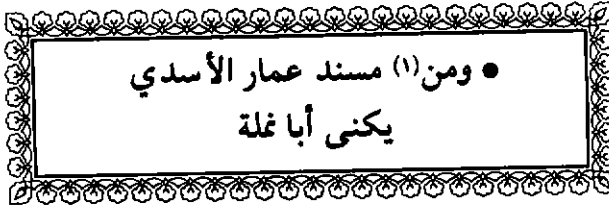 • ومن(١) مسند عمار الأسدي
يكنى أبا نملة